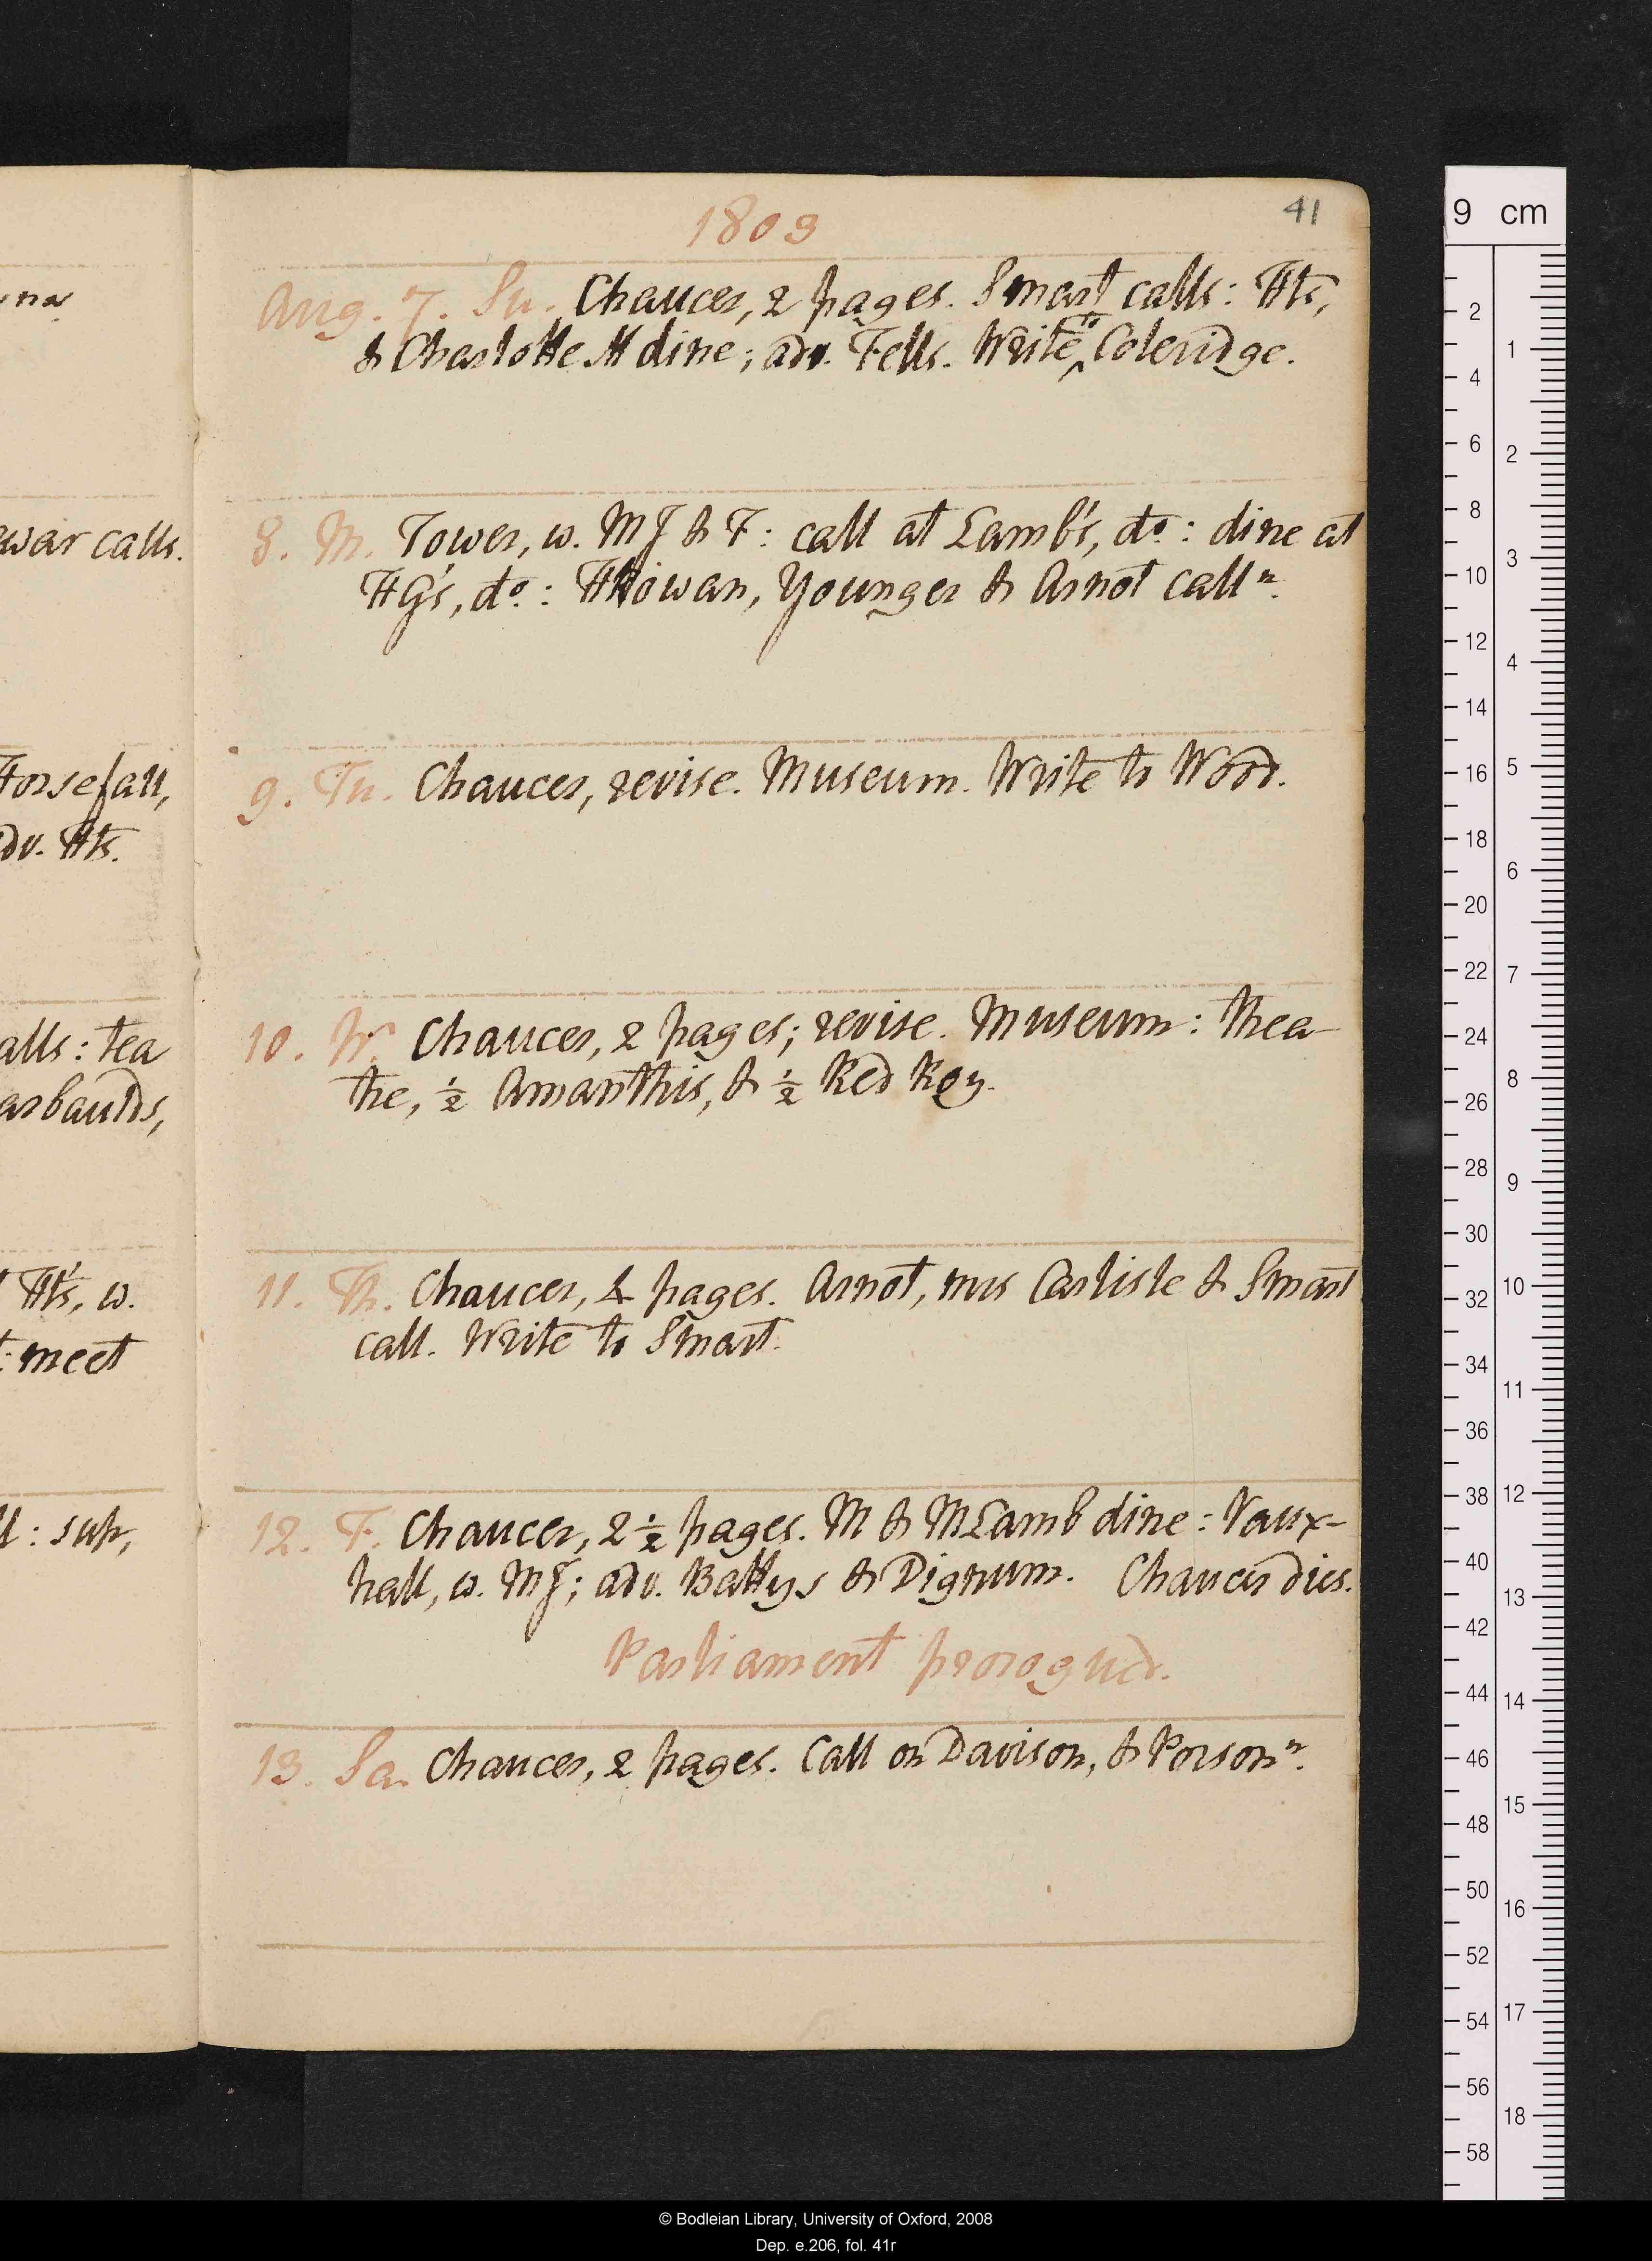 1803
41
Aug. 7. Su. Chaucer, 2 pages. Smart calls: Hts,
& Charlotte M dine; adv. Fells. Write to Coleridge.
8. M. Tower, w. MJ & F: call at Lamb's, do: dine at
HG's, do: HRowan, Younger & Arnot calln.
9. Tu. Chaucer, revise. Museum. Write to Word.
10. W. Chaucer, 2 pages; revise. Museum: Thea-
tre, ½ Amanthis, & ½ Red Roy.
11. Th. Chaucer, pages. Arnot, mrs Carlisle & Smart
call. Write to Smart.
12. F. Chaucer, 2½ pages. M & MLamb dine: Vaux-
hall, w. MJ; adv. Battys & Dignum. Chaucer dies.
Parliament prorogued.
13. Sa. Chaucer, 2 pages. Call on Davison, & Porsonn.
war calls.
Horsefall,
adv. Hts.
alls: tea
arbaulds,
Ht's, w.
: meet
: sup,
9 cm
2
4
6
8
10
12
14
16
18
20
22
24
26
28
30
32
34
36
38
40
42
44
46
48
50
52
54
56
58
1
2
3
4
5
6
7
8
9
10
11
12
13
14
15
16
17
18
© Bodleian Library, University of Oxford, 2008
Dep. e.206, fol. 41r